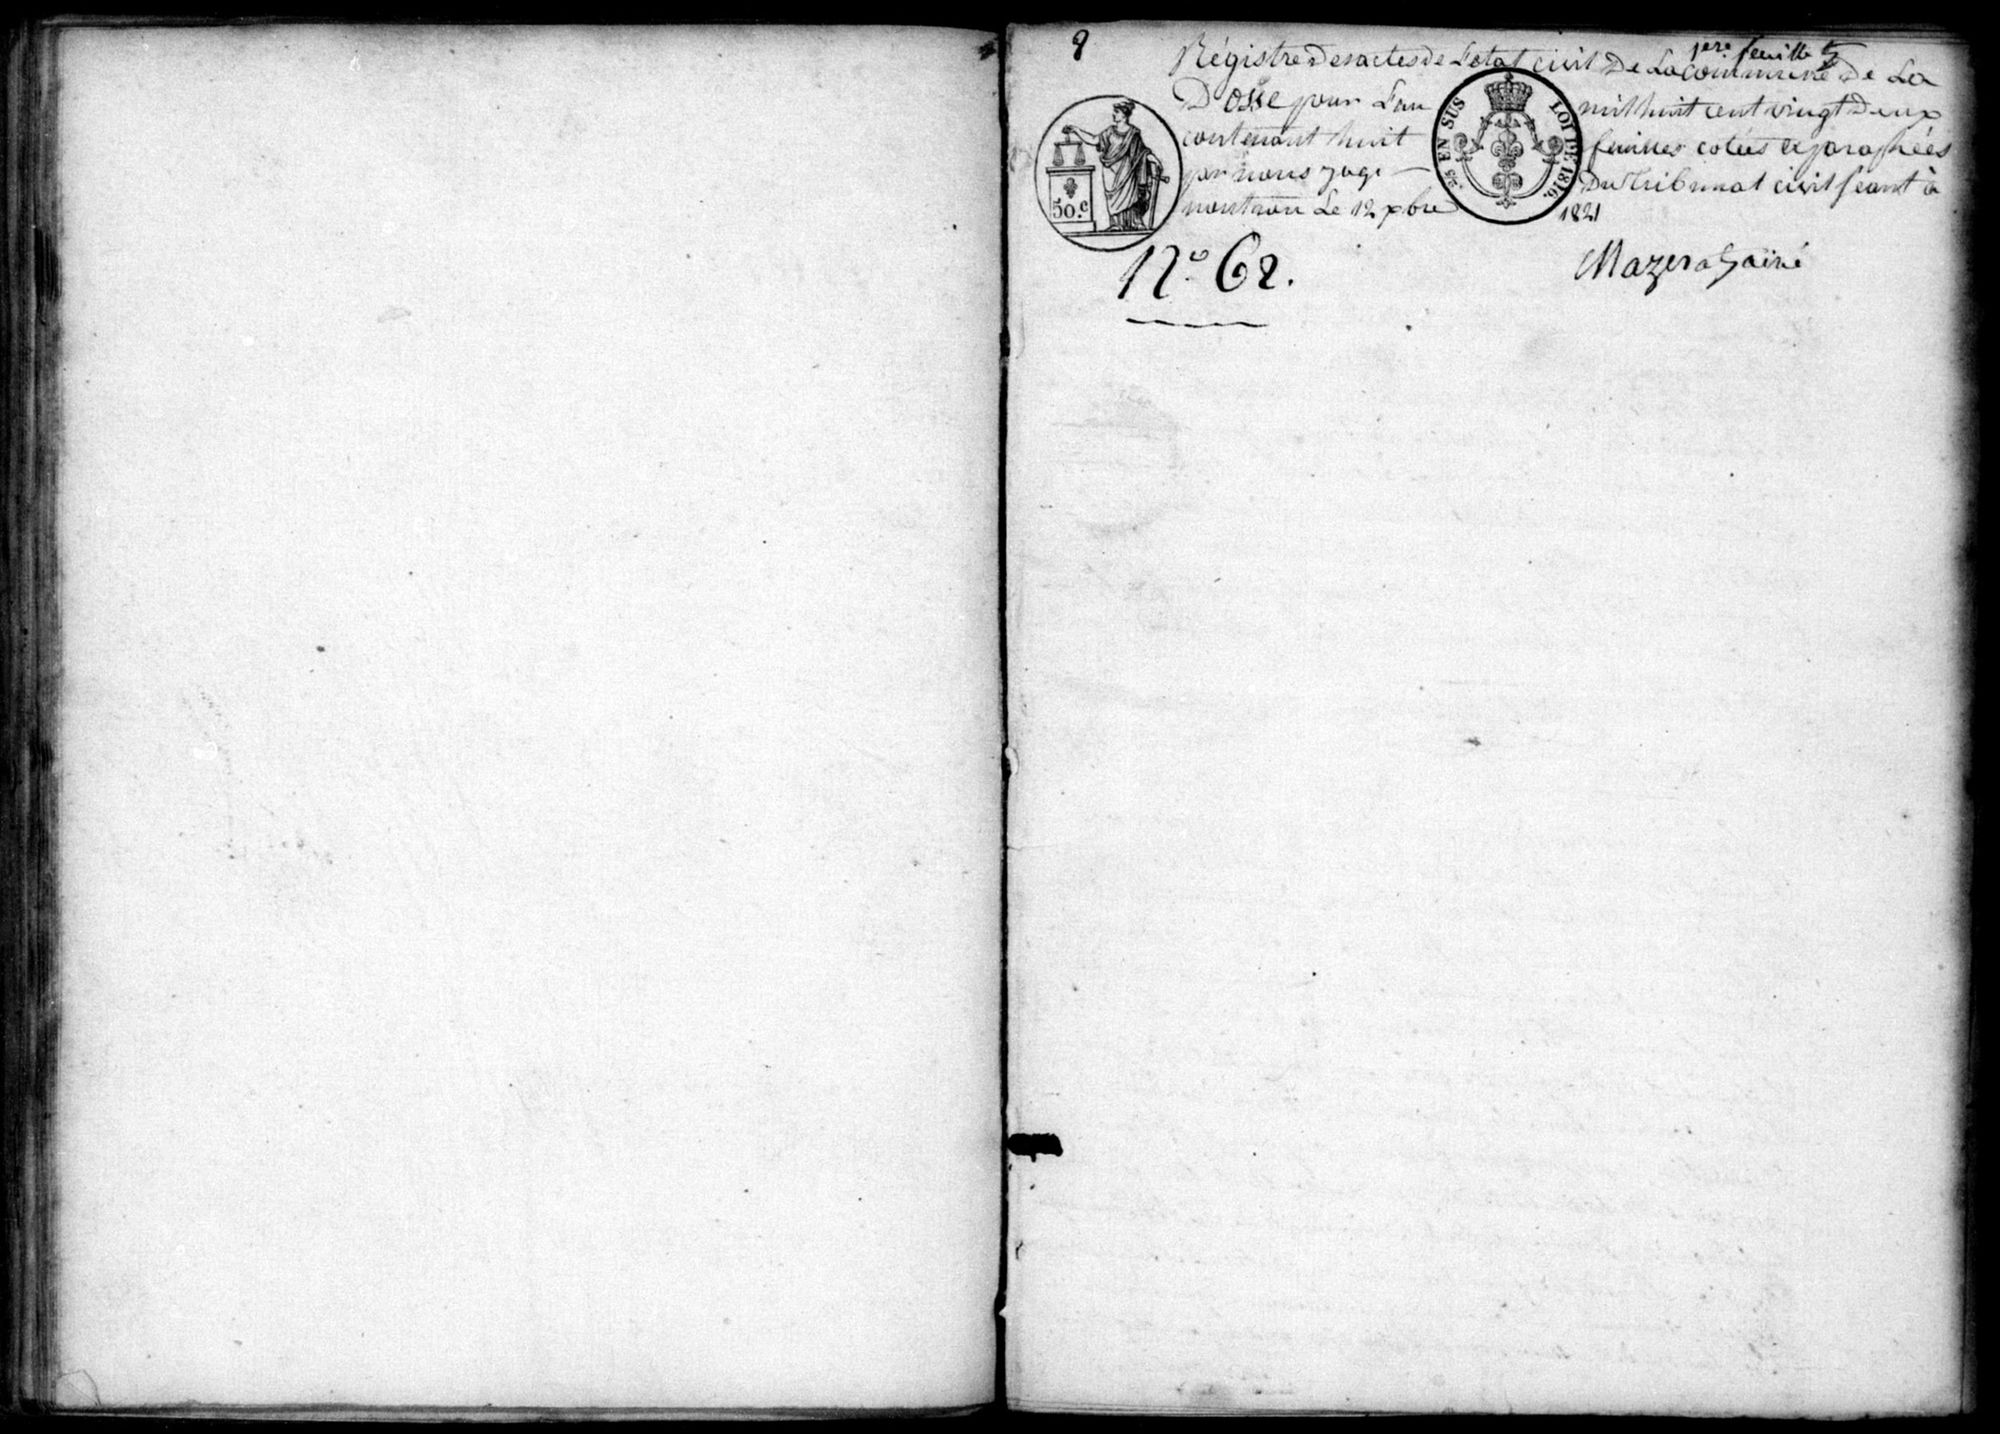 8
1ere feuille
Régistre Des actes de L'etat civil De La Commune De La
Dosse pour L'an mil huit cent vingt Deux
contenant huit feuilles cotées et paraphées
par nous juge Du Tribunal civil séant à
nontron Le 12 xbre 1821
50.c
.25 EN SUS LOI DE 1816.
N.o 62.
Mazerat ainé